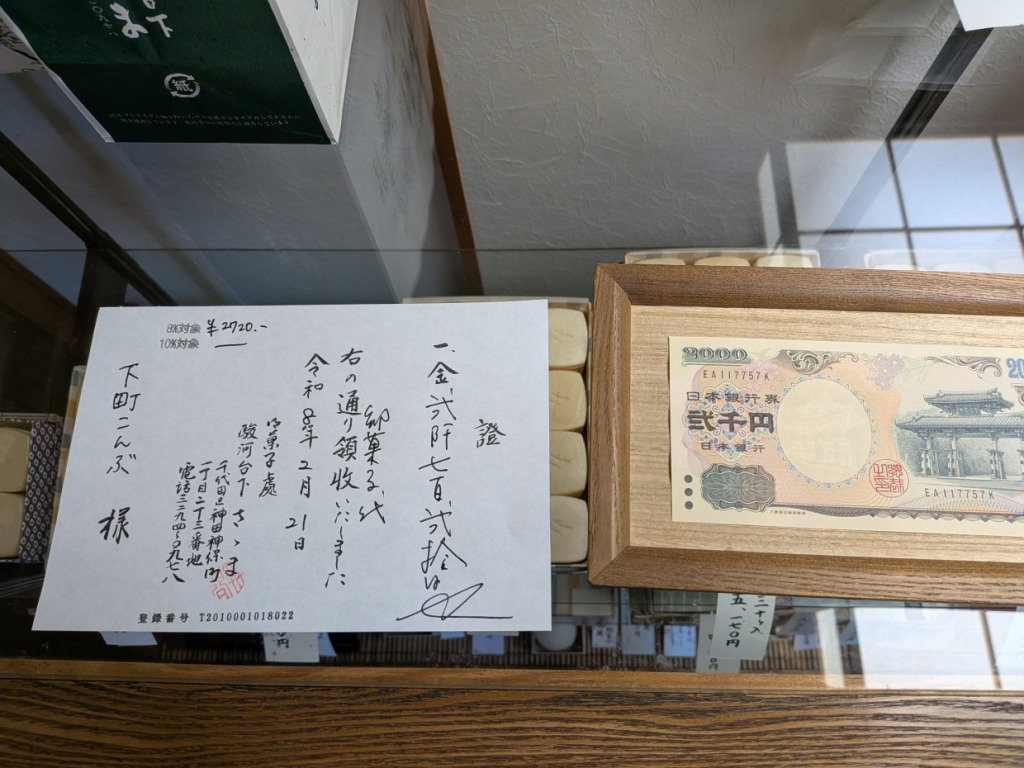 8%対象 ¥2720.-
10%対象 ー
證
一、金、弐阡七百、弐拾円
御菓子代
右の通り領收いたしました
令和8年2月21日
御菓子處
駿河台下 さゝま
千代田区神田神保町
一丁目二十三番地
電話三二九四-〇九七八
下町こんぶ 様
登録番号 T2010001018022
2000
EA117757K
日本銀行券
弐千円
日本銀行
EA117757K
20
紙
台下
ま
二十ヶ入
五、一七〇円
円
円